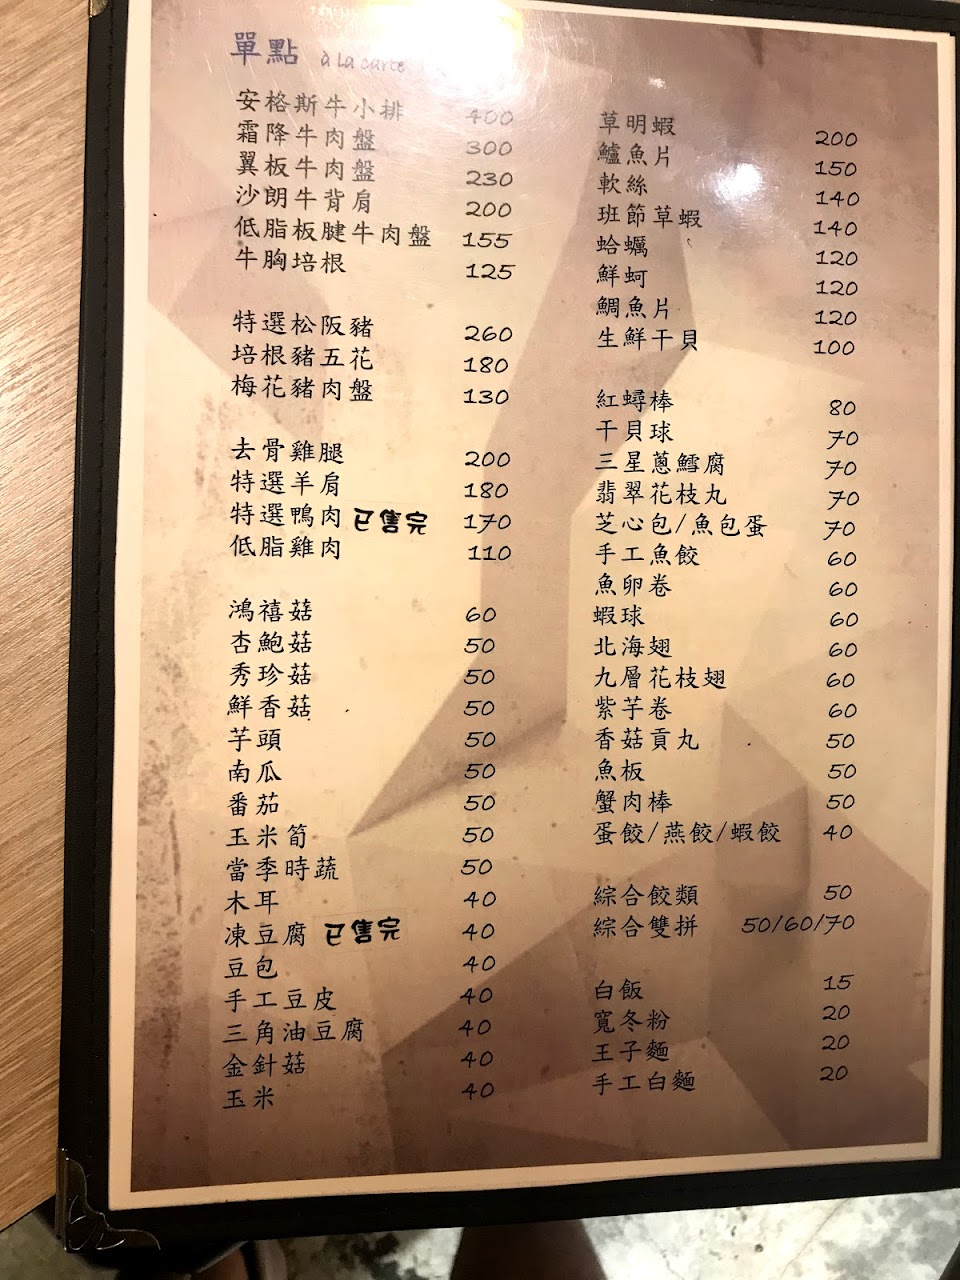 單點 à La carte
安格斯牛小排 400
霜降牛肉盤 300
翼板牛肉盤 230
沙朗牛背肩 200
低脂板腱牛肉盤 155
牛胸培根 125
特選松阪豬 260
培根豬五花 180
梅花豬肉盤 130
去骨雞腿 200
特選羊肩 180
特選鴨肉 已售完 170
低脂雞肉 110
鴻禧菇 60
杏鮑菇 50
秀珍菇 50
鮮香菇 50
芋頭 50
南瓜 50
番茄 50
玉米筍 50
當季時蔬 50
木耳 40
凍豆腐 已售完 40
豆包 40
手工豆皮 40
三角油豆腐 40
金針菇 40
玉米 40
草明蝦 200
鱸魚片 150
軟絲 140
班節草蝦 140
蛤蠣 120
鮮蚵 120
鯛魚片 120
生鮮干貝 100
紅蟳棒 80
干貝球 70
三星蔥鱈腐 70
翡翠花枝丸 70
芝心包/魚包蛋 70
手工魚餃 60
魚卵卷 60
蝦球 60
北海翅 60
九層花枝翅 60
紫芋卷 60
香菇貢丸 50
魚板 50
蟹肉棒 50
蛋餃/燕餃/蝦餃 40
綜合餃類 50
綜合雙拼 50/60/70
白飯 15
寬冬粉 20
王子麵 20
手工白麵 20